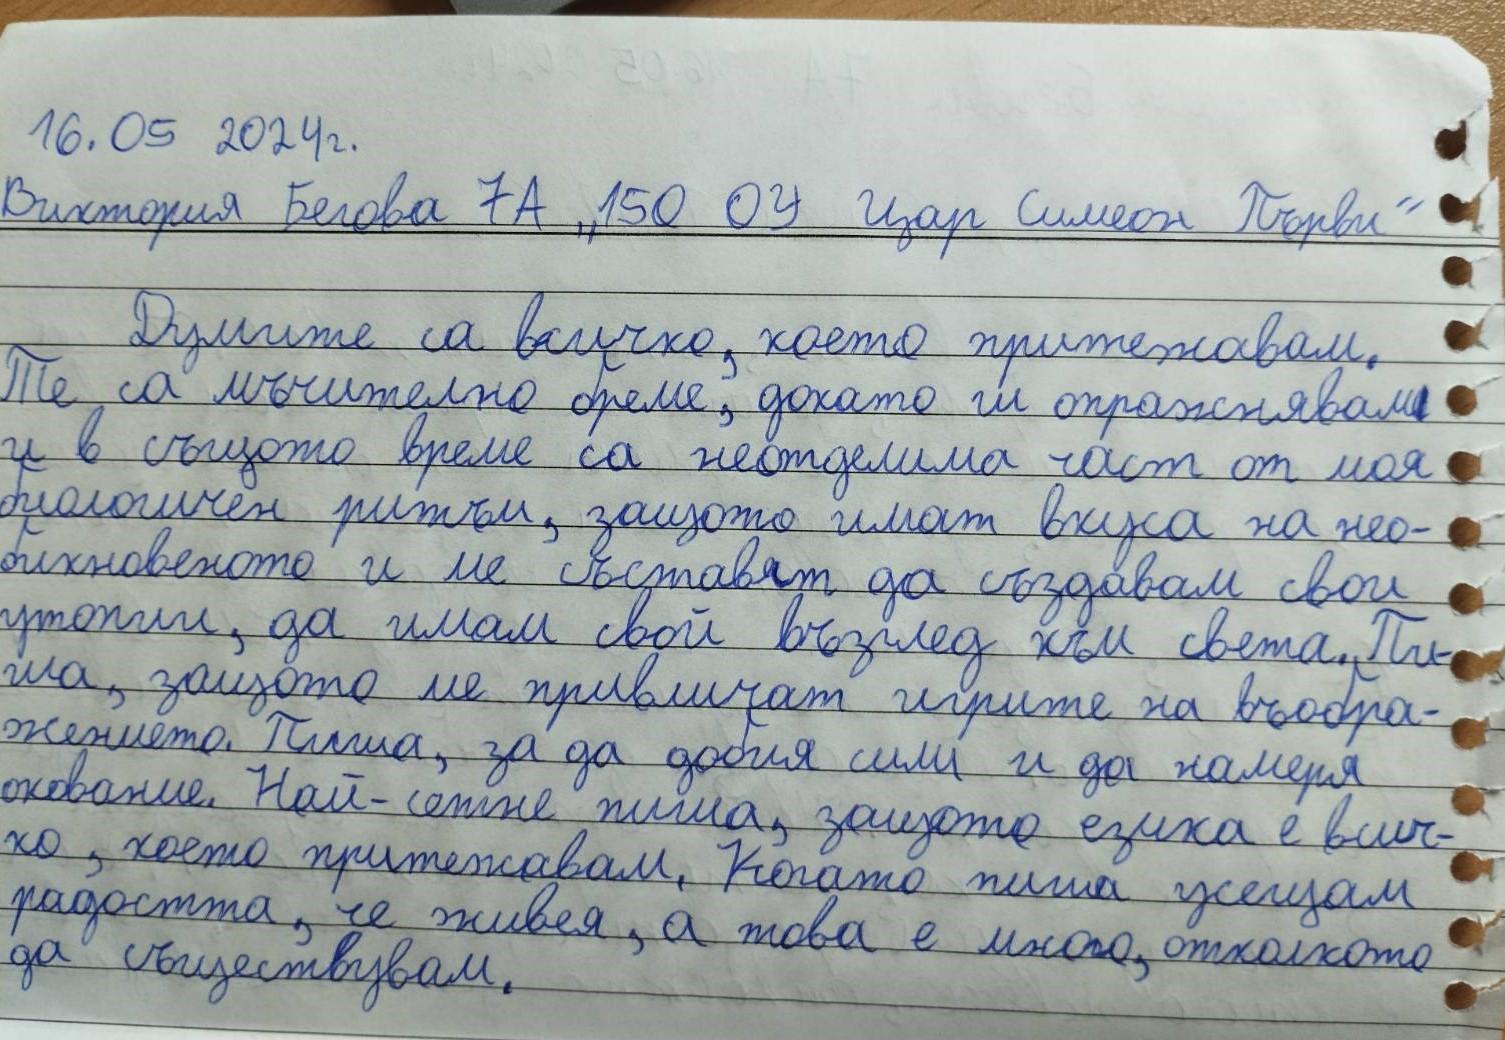 16.05 2024г.
Виктория Бегова 7А „150 ОУ Цар Симеон Първи"
Думите са всичко, което притежавам.
Те са мъчително бреме, докато ги опражнявам
и в същото време са неотделима част от моя
биологичен ритъм, защото имат вкуса на нео-
бикновеното и ме съставят да създавам свои
утопии, да имам свой възглед към света. Пи-
ша, защото ме привличат игрите на въобра-
жението. Пиша, за да добия сили и да намеря
окование. Най-сетне пиша, защото езика е всич-
ко, което притежавам. Когато пиша усещам
радостта, че живея, а това е много, отколкото
да съществувам.